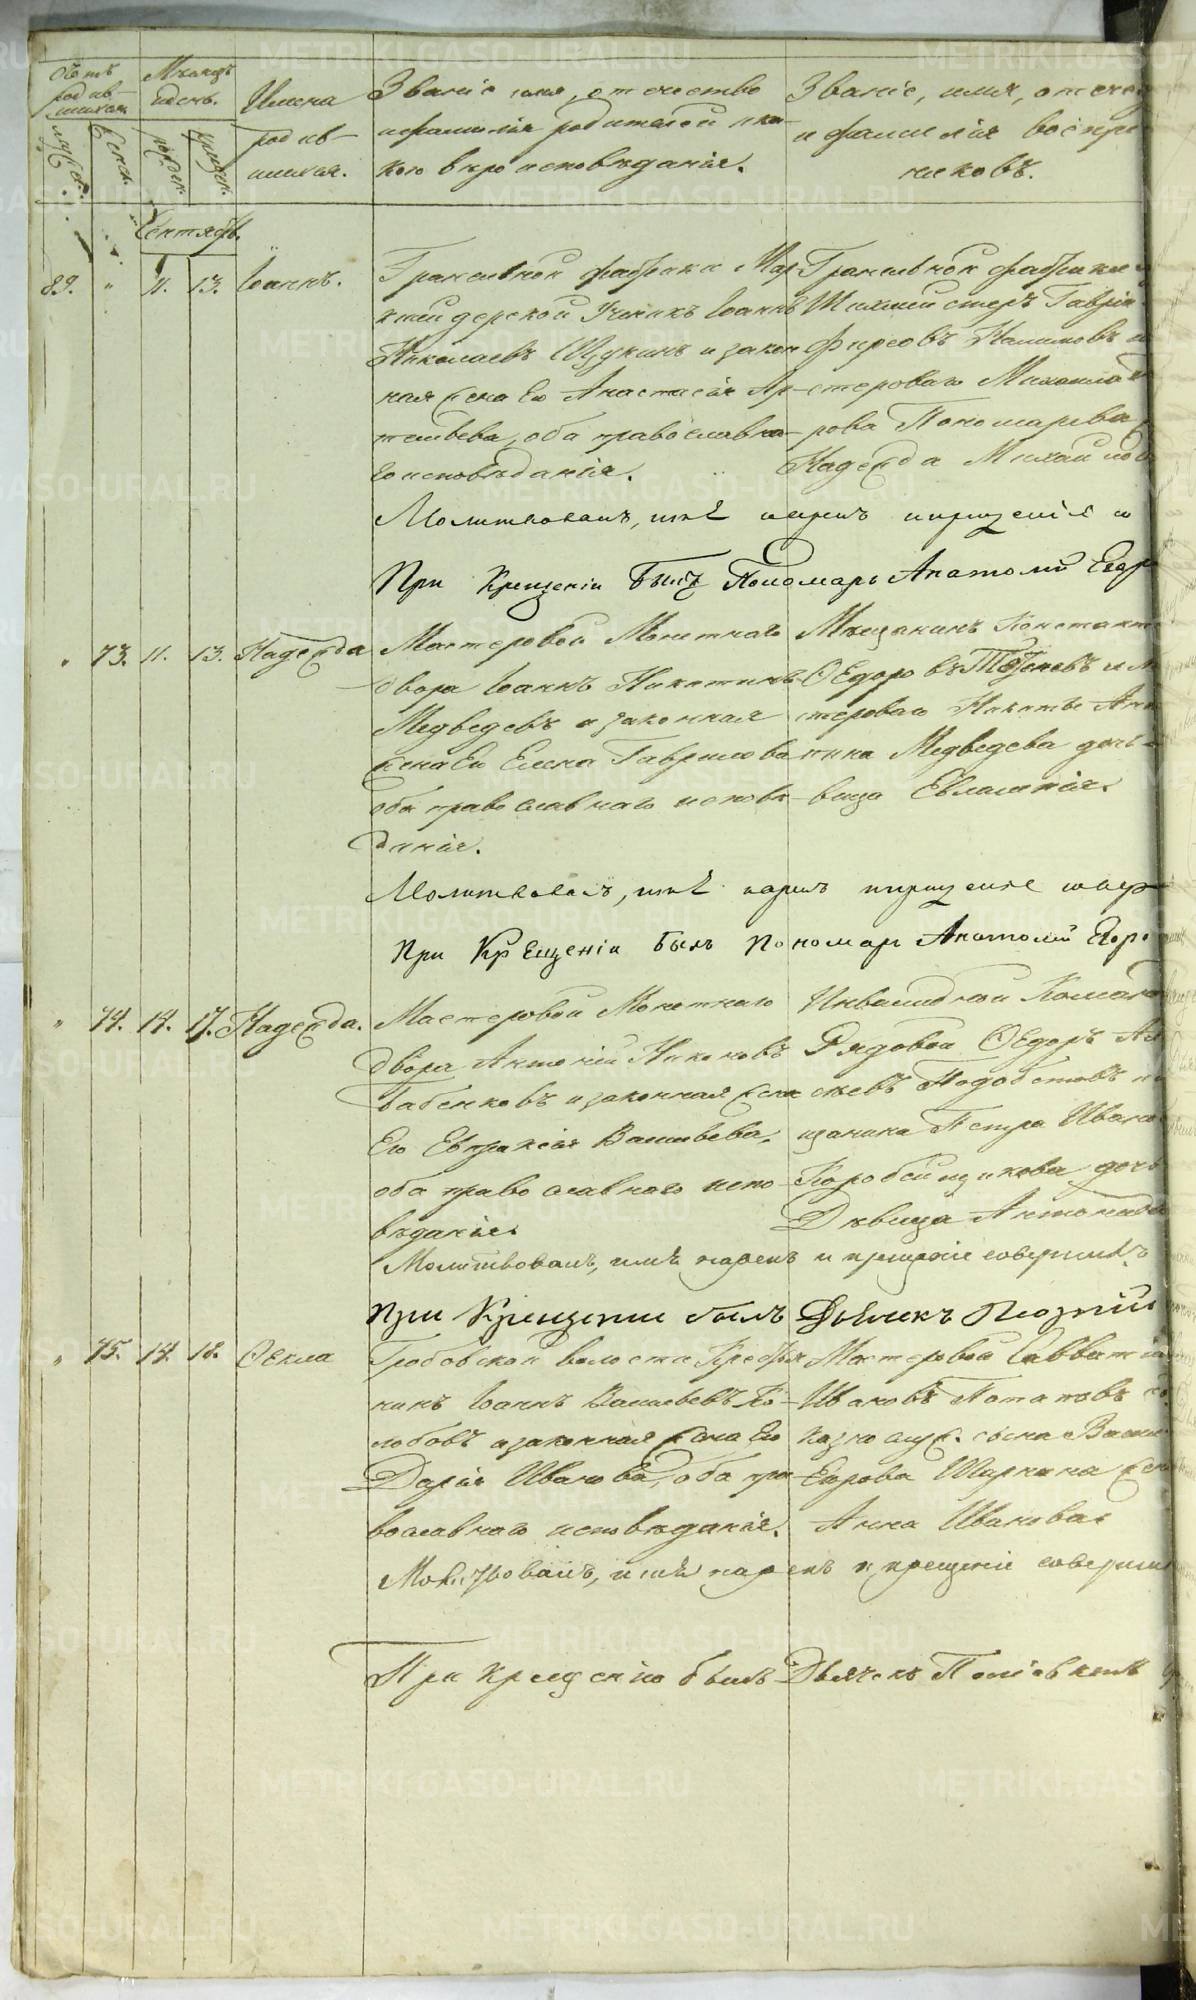 Счетъ родившихся
Мѣсяцъ и день.
Имена родив-
шихся.
Званіе имя, отчество
и фамилія родителей и ка-
кого вѣроисповѣданія.
Званіе, имя, отчес
и фамилія воспрі-
никовъ.
муж.
женс.
рожден.
крещен.
Сентябрь.
89. " 11. 13. Іоаннъ.
Гранильной фабрики Мар-
кшейдерской Ученикъ Іоаннъ
Николаевъ Щукинъ и закон
ная жена Его Анастасія Ар-
темьева, оба православна-
го исповѣданія.
Гранильной фабрики
Шихмейстеръ Гаврі
Фирсовъ Налимовъ и
стероваго Михаила
рова Пономарева
Надежда Михайлов
Молитвовалъ, имѧ нарекъ и крещеніе
При Крещеніи былъ Пономарь Анатолій Егор
" 73. 11. 13. Надежда
Мастеровой Монетнаго
двора Іоаннъ Никитинъ
Медвѣдевъ и законная
жена Его Елена Гаврилова
оба православнаго исповѣ-
данія.
Мѣщанинъ Констант
Ѳедоровъ и М
стероваго Никиты Ант
Медведева дочь
вица Евлампія.
Молитвовалъ, имѧ нарекъ и крещеніе совер
При Крещеніи былъ Пономарь Анатолій Егор
" 74. 14. 17. Надежда.
Мастеровой Монетнаго
двора Антоній Никоновъ
Бабенковъ и законная жена
Его Евпраксія Васильева,
оба православнаго испо-
вѣданія.
Инвалидной Команд
Рядовой Ѳедоръ Ал
сѣевъ и
щанина Петра Ивано
Коробейщикова дочь
Дѣвица Антонида
Молитвовалъ, имѧ нарекъ и крещеніе совершилъ
При Крещеніи былъ Дьячекъ
" 75. 14. 18. Ѳекла
Гробовской волости Крестья
нинъ Іоаннъ Васильевъ Ко-
лобовъ и законная жена Его
Дарія Иванова, оба пра-
вославнаго исповѣданія.
Мастеровой Савватій
Ивановъ Потаповъ
казно служ. сына Васил
Егорова Шаркина жен
Анна Иванова
Молитвовалъ, имѧ нарекъ и крещеніе соверши
При крещеніи былъ Дьячекъ
METRIKI.GASO-URAL.RU